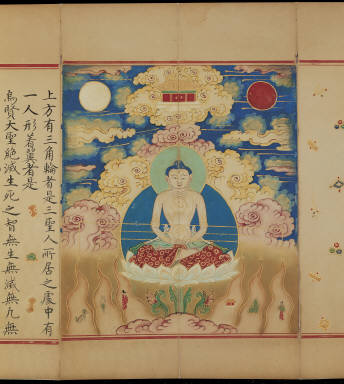 上方有三角輪者是三聖人所居之處中有
一人形著冀者是
為賢大聖絶滅生死之智無生無滅無凡無